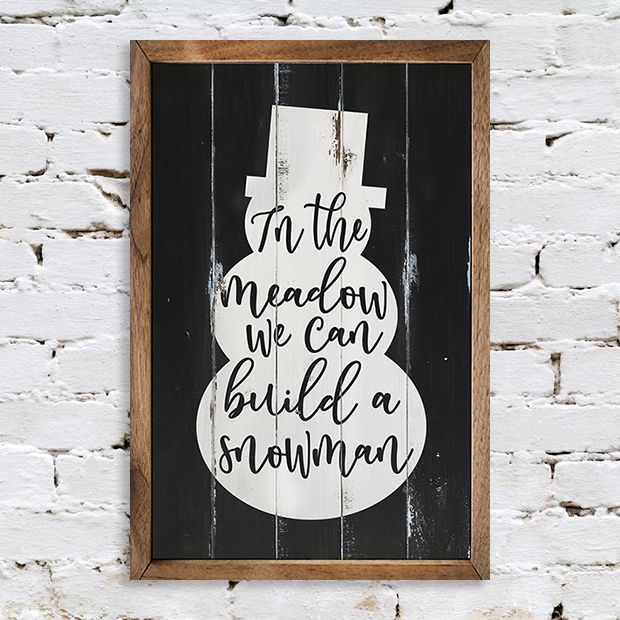 In the
meadow
we can
build a
snowman